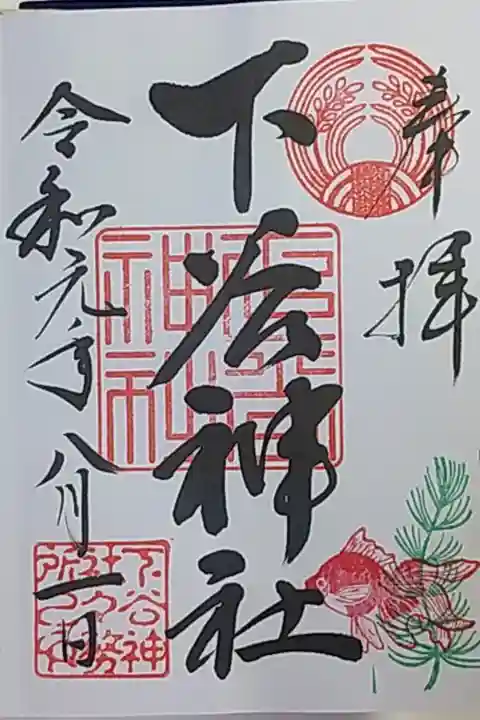 奉拝
下谷神社
令和元年八月一日
下谷神
社社務
所之印